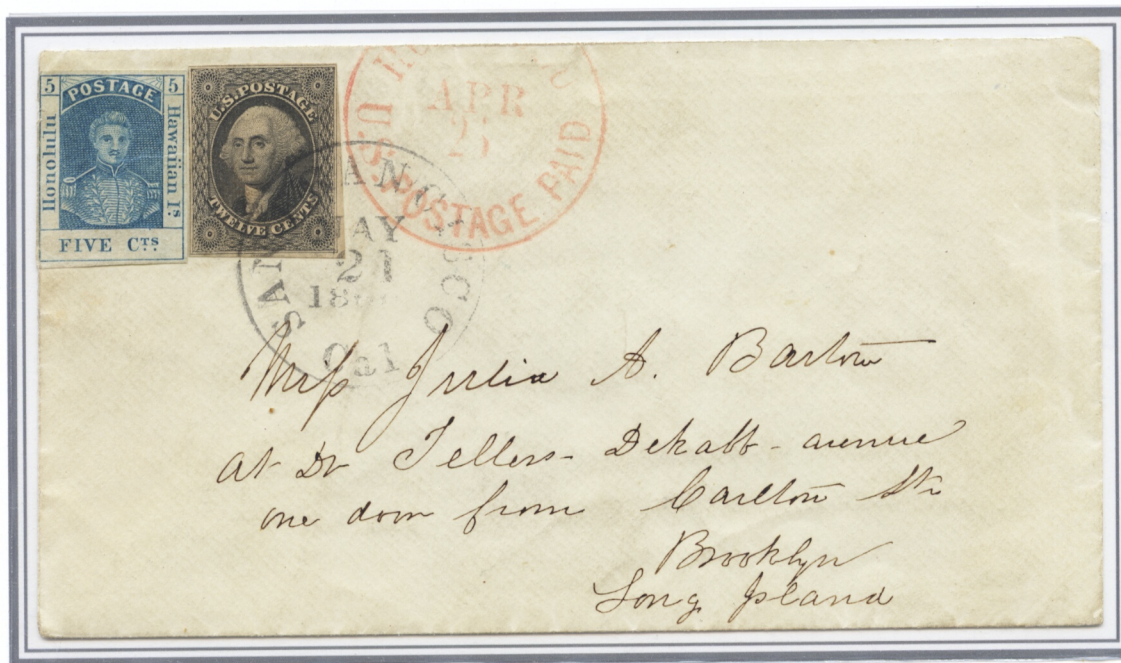 5 POSTAGE 5
Honolulu
Hawaiian Is.
FIVE CTS
U.S. POSTAGE
TWELVE CENTS
APR
U.S. POSTAGE PAID
SAN FRANCISCO
MAY
21
18
Cal
Miss Julia A. Bartow
at Dr Tellers - Dekalb - avenue
one door from Carlton St.
Brooklyn
Long Island